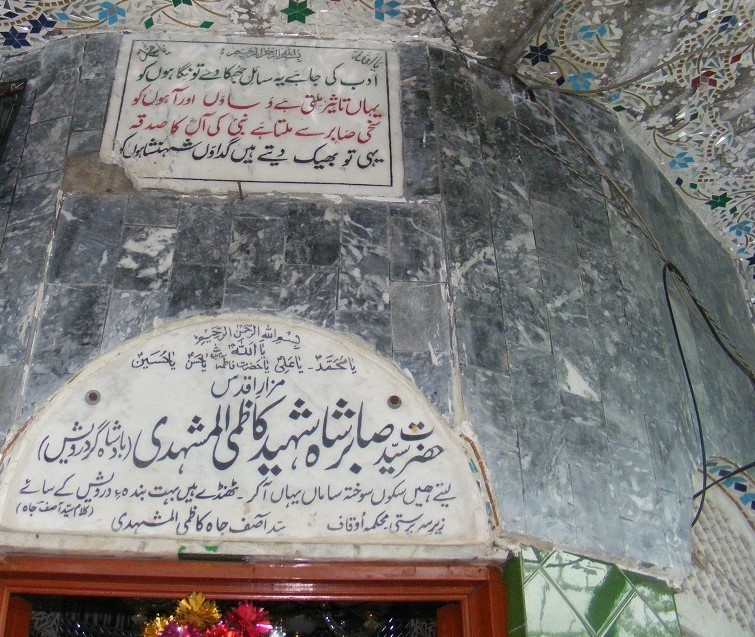 بسم اللہ الرحمن الرحیم
ادب کی جائے ہے سائل جھکا دے تو نگاہوں کو
یہاں تاثیر ملتی ہے دعاؤں اور آہوں کو
سخی صابر سے ملتا ہے نبی کی آل کا صدقہ
یہی تو بھیک دیتے ہیں گداؤں شہنشاہوں کو
بسم اللہ الرحمن الرحیم
یا اللہ
یا محمد - یا علی یا حضرت فاطمہ یا حسن یا حسین
مزار اقدس
حضرت سید صابر شاہ شہید کاظمی المشہدی (بادشاہ گر درویش)
لیتے ھیں سکوں سوختہ ساماں یہاں آ کر - ٹھنڈے ہیں بہت بندہء درویش کے سائے
(کلام سید آصف جاہ)
زیر سرپرستی محکمہ اوقاف سید آصف جاہ کاظمی المشہدی